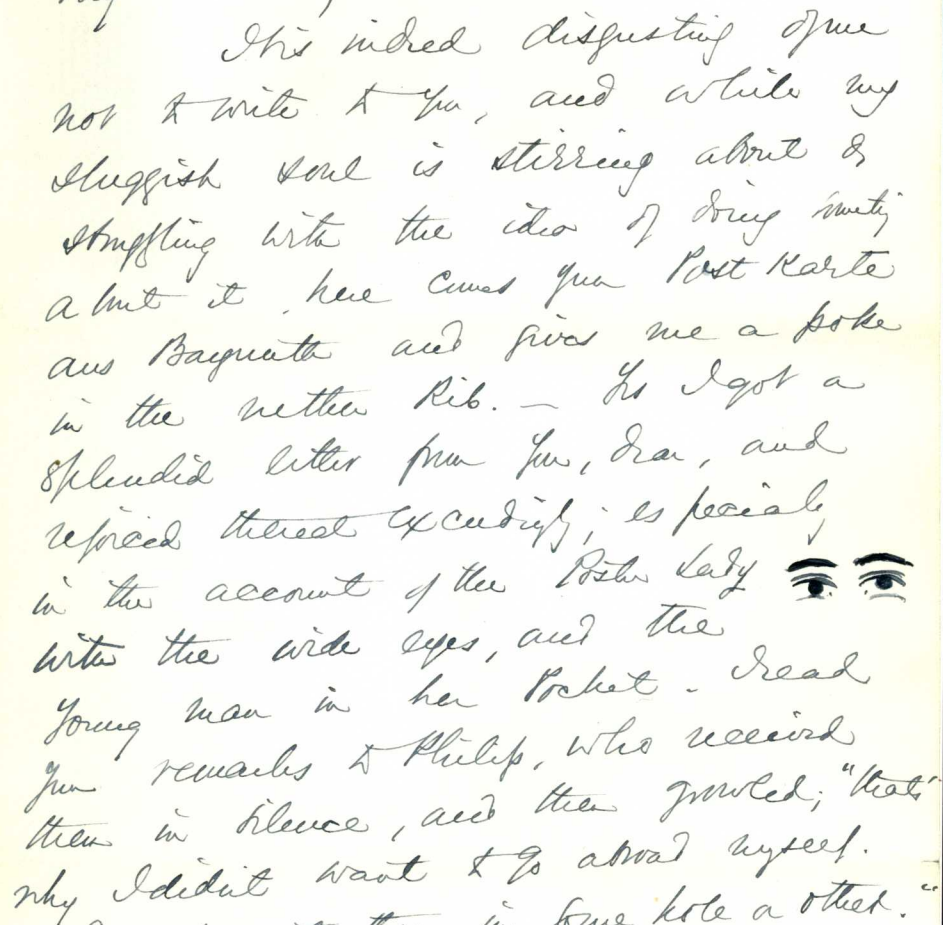 It is indeed disgusting of me
not to write to you, and while my
sluggish soul is stirring about &
struggling with the idea of doing
about it, here comes your Post Karte
aus Bayreuth and gives me a poke
in the nether Rib. — Yes I got a
splendid letter from you, dear, and
rejoiced thereat exceedingly; especialy
in the account of the Lady
with the wide eyes, and the
Young man in her Pocket. I read
your remarks to Philip, who received
them in silence, and then growled; "that's
why I didn't want to go abroad myself.
in some hole or other."